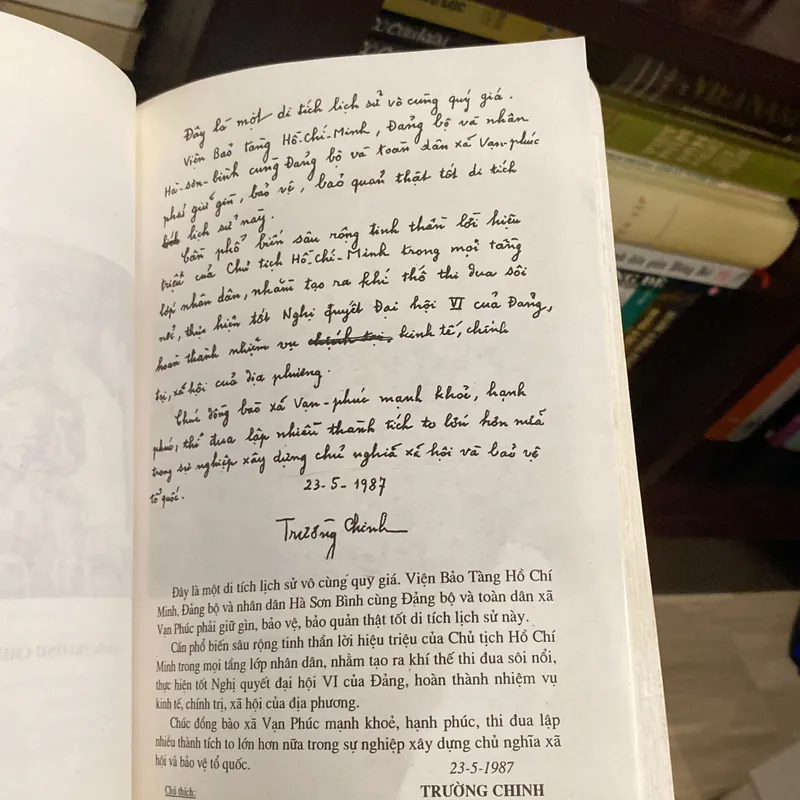 Đây là một di tích lịch sử vô cùng quý giá.
Viện Bảo tàng Hồ-Chí-Minh, Đảng bộ và nhân
Hà-sơn-bình cùng Đảng bộ và toàn dân xã Vạn-phúc
phải giữ gìn, bảo vệ, bảo quản thật tốt di tích
lịch sử này.
Cần phổ biến sâu rộng tinh thần lời hiệu
triệu của Chủ tịch Hồ-Chí-Minh trong mọi tầng
lớp nhân dân, nhằm tạo ra khí thế thi đua sôi
nổi, thực hiện tốt Nghị quyết Đại hội VI của Đảng,
hoàn thành nhiệm vụ chính trị, kinh tế, chính
trị, xã hội của địa phương.
Chúc đồng bào xã Vạn-phúc mạnh khoẻ, hạnh
phúc, thi đua lập nhiều thành tích to lớn hơn nữa
trong sự nghiệp xây dựng chủ nghĩa xã hội và bảo vệ
tổ quốc.
23-5-1987
Trường Chinh
Đây là một di tích lịch sử vô cùng quý giá. Viện Bảo Tàng Hồ Chí
Minh, Đảng bộ và nhân dân Hà Sơn Bình cùng Đảng bộ và toàn dân xã
Vạn Phúc phải giữ gìn, bảo vệ, bảo quản thật tốt di tích lịch sử này.
Cần phổ biến sâu rộng tinh thần lời hiệu triệu của Chủ tịch Hồ Chí
Minh trong mọi tầng lớp nhân dân, nhằm tạo ra khí thế thi đua sôi nổi,
thực hiện tốt Nghị quyết đại hội VI của Đảng, hoàn thành nhiệm vụ
kinh tế, chính trị, xã hội của địa phương.
Chúc đồng bào xã Vạn Phúc mạnh khoẻ, hạnh phúc, thi đua lập
nhiều thành tích to lớn hơn nữa trong sự nghiệp xây dựng chủ nghĩa xã
hội và bảo vệ tổ quốc.
23-5-1987
TRƯỜNG CHINH
Chú thích:
VIỆT NAM